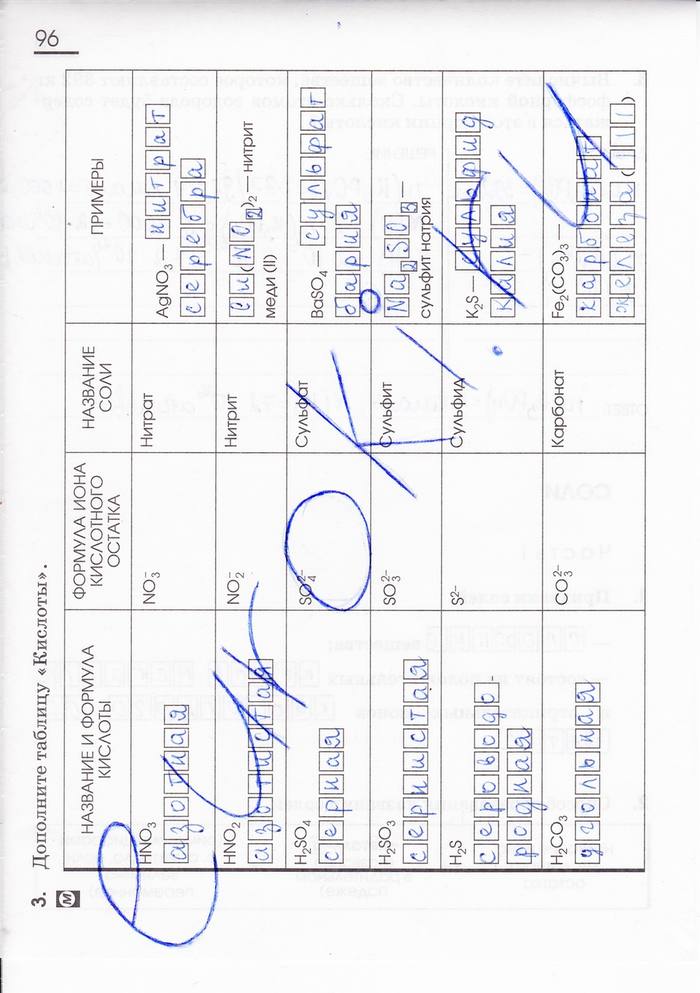 96
3. Дополните таблицу «Кислоты».
М
НАЗВАНИЕ И ФОРМУЛА КИСЛОТЫ
ФОРМУЛА ИОНА КИСЛОТНОГО ОСТАТКА
НАЗВАНИЕ СОЛИ
ПРИМЕРЫ
HNO₃
азотная
NO₃⁻
Нитрат
AgNO₃ — нитрат
серебра
HNO₂
азотистая
NO₂⁻
Нитрит
Cu(NO₂)₂ — нитрит
меди (II)
H₂SO₄
серная
SO₄²⁻
Сульфат
BaSO₄ — сульфат
бария
H₂SO₃
сернистая
SO₃²⁻
Сульфит
Na₂SO₃ —
сульфит натрия
H₂S
сероводо
родная
S²⁻
Сульфид
K₂S — сульфид
калия
H₂CO₃
угольная
CO₃²⁻
Карбонат
Fe₂(CO₃)₃ —
карбонат
железа (III)